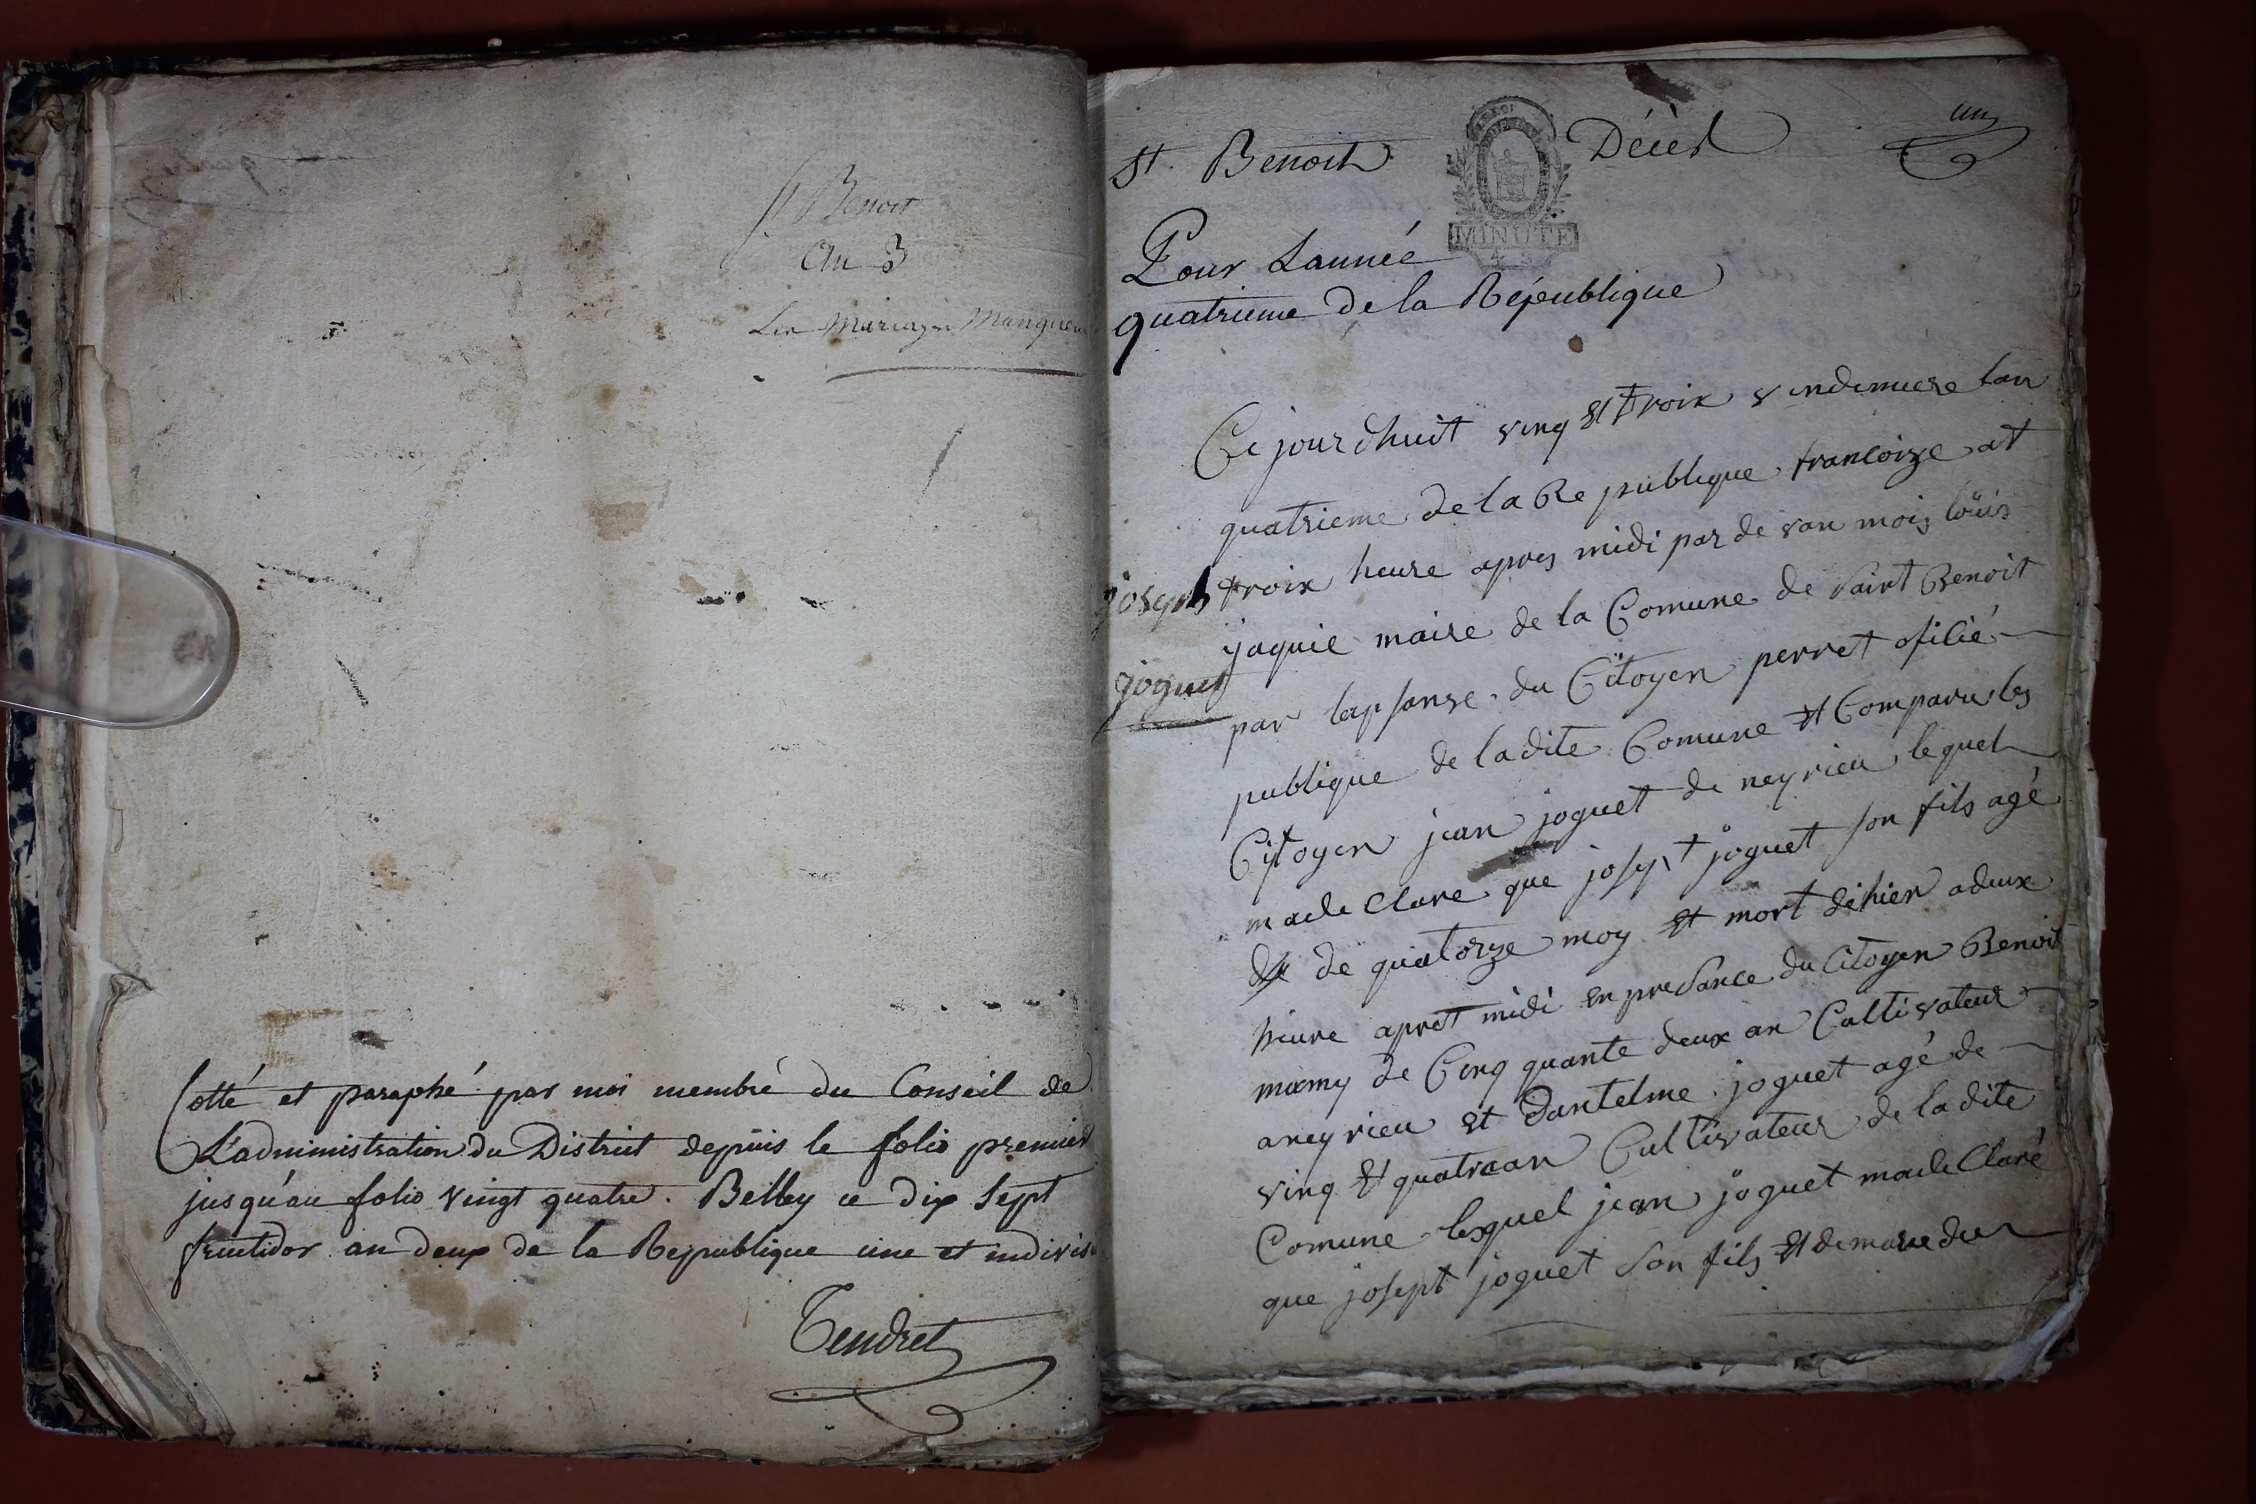 St Benoit
An 3
Les Mariages Manquent
Cotté et paraphé par moi membre du Conseil de
L'administration du District depuis le folio premier
jusqu'au folio vingt quatre. Belley ce dix sept
fructidor an deux de la Republique une et indivis
Tendret
St. Benoit Décès un
MINUTE
Pour Lannéé
quatrieme de la République
Ce jourdhuit vinq et troix vendemiere lan
quatrieme de la Re publique francoize at
troix heure apres midi par de van mois löüis
jaquie maire de la Comune de saint Benoit
joseph
joguet
par lap sanse du Citoyen perret ofilié
publique de ladite Comune et Comparu les
Citoyen jean joguet de neyrieu lequel
macle clare que josept joguet son fils agé
de quatorze moy et mort dehier a deux
heure apret midi en presance du Citoyen Benoit
mamy de Cinq quante deux an Cultivateur
aneyrieu et dantelme joguet agé de
vinq et quatre an Cultivateur de ladite
Comune lequel jean joguet macle Claré
que josept joguet son fils et demeure du